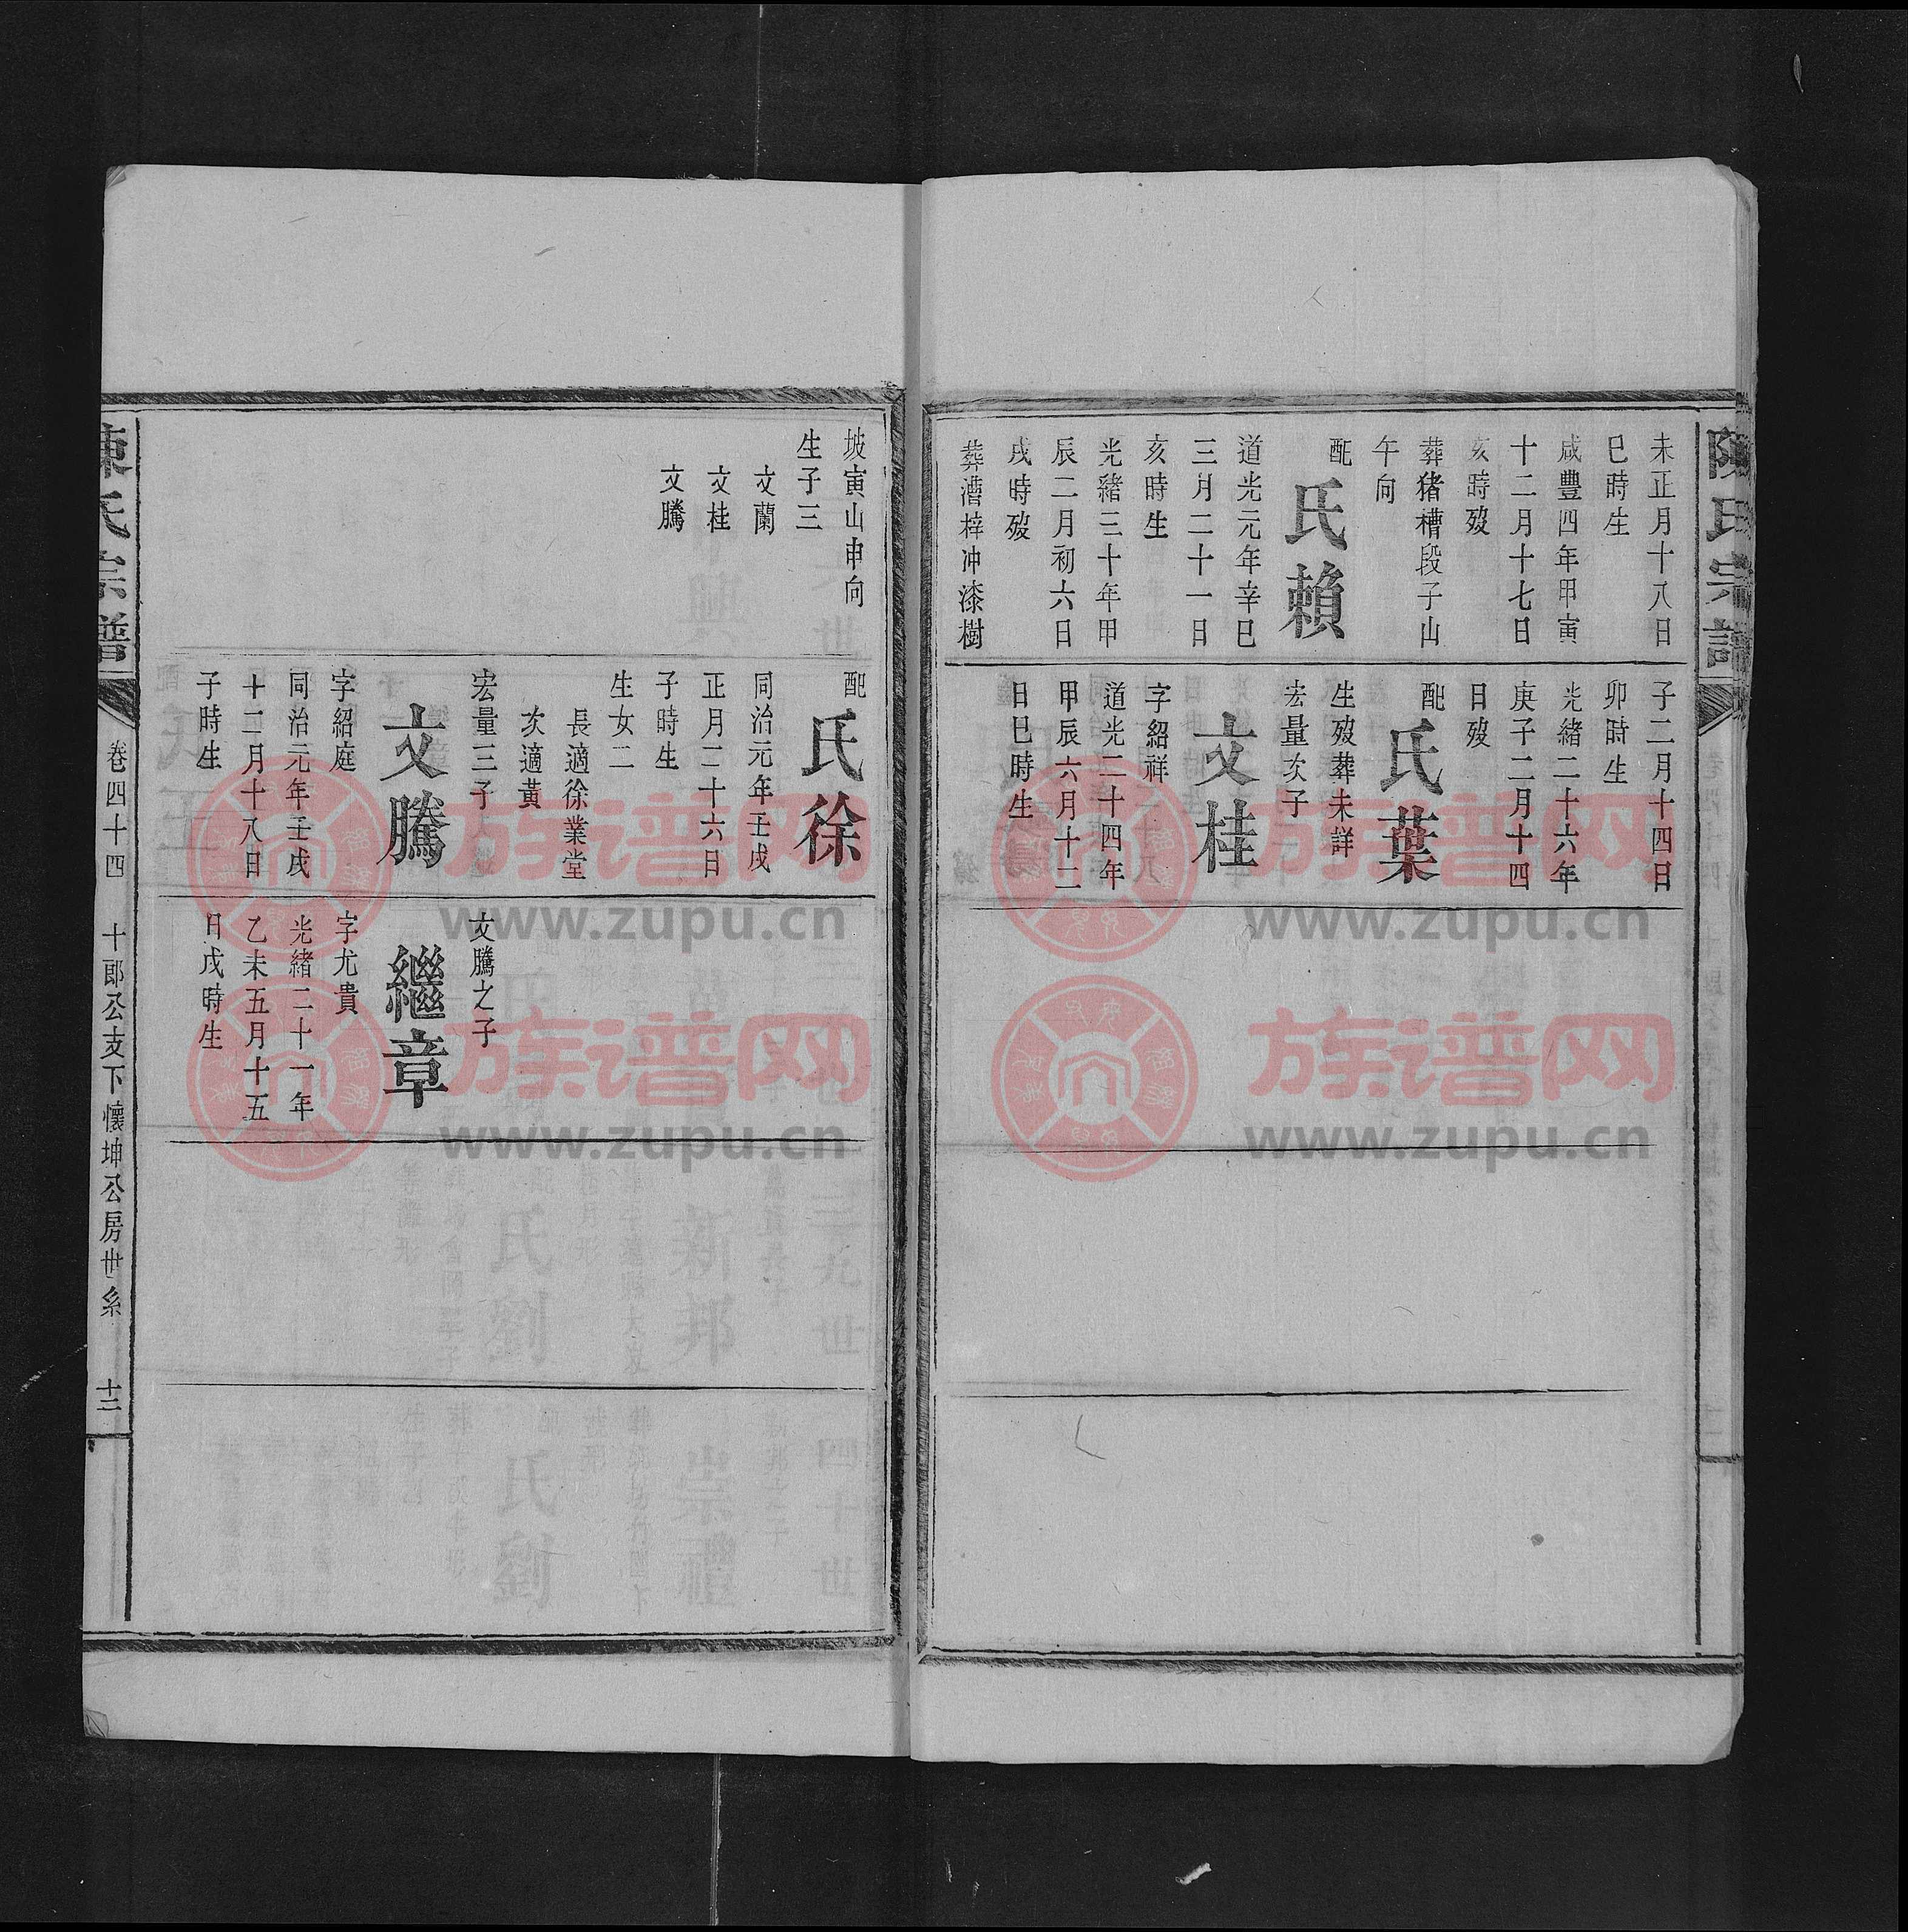 陳氏宗譜
未正月十八日
巳時生
咸豐四年甲寅
十二月十七日
亥時歿
葬猪槽段子山
午向
配
氏賴
道光元年辛巳
三月二十一日
亥時生
光緒三十年甲
辰二月初六日
戌時歿
葬漕梓冲漆樹
子二月十四日
卯時生
光緒二十六年
庚子二月十四
日歿
配
氏葉
生歿葬未詳
宏量次子
文桂
字紹祥
道光二十四年
甲辰六月十二
日巳時生
坡寅山申向
生子三
文蘭
文桂
文騰
配
氏徐
同治元年壬戌
正月二十六日
子時生
生女二
長適徐業堂
次適黃
宏量三子
文騰
字紹庭
同治元年壬戌
十二月十八日
子時生
文騰之子
繼章
字尤貴
光緒二十一年
乙未五月十五
日戌時生
陳氏宗譜
卷四十四
十郎公支下懷坤公房世系
十三
族谱网
www.zupu.cn
族谱网
www.zupu.cn
族谱网
www.zupu.cn
族谱网
www.zupu.cn